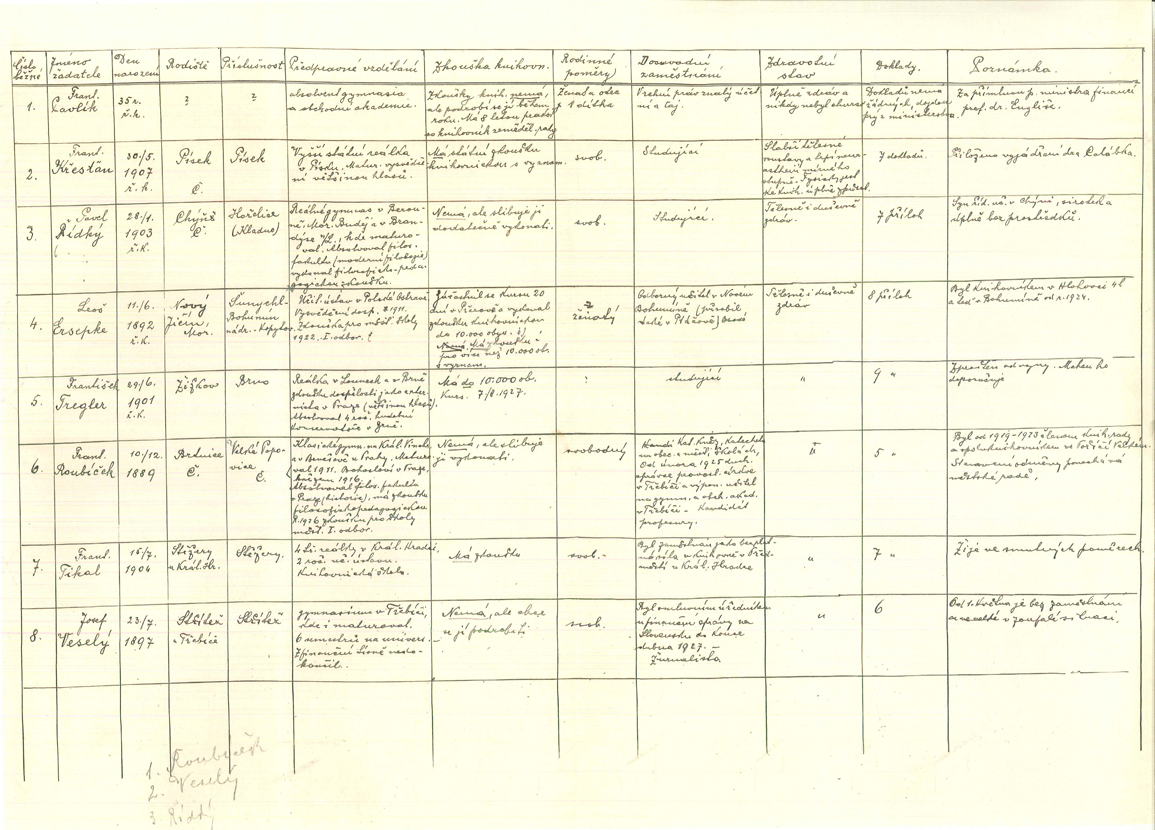 Číslo běžné
Jméno žadatele
Den narození
Rodiště
Příslušnost
Předpravné vzdělání
Zkouška knihovn.
Rodinné poměry
Dosavadní zaměstnání
Zdravotní stav
Doklady.
Poznámka.
1.
Frant.
Pavlík
35 r.
ř.k.
?
?
absolvent gymnasia
a obchodní akademie.
Zkoušky knih. nemá,
ale podrobí se jí během
roku. Má 8 letou praksi
co knihovník zeměděl. rady
Ženat a otec
1 dítka
Úplně zdráv a
nikdy nebyl churav
Doklady nemá
žádných,
pry z ministerstva.
Za přímluvu p. ministra financí
prof. dr. Engliše.
2.
Frant.
Křešťan
30/5.
1907
ř.k.
Písek
Č.
Písek
Vyšší státní reálka
v Písku. Matur. vysvědče
ní většinou hlasů.
Má státní zkoušku
knihovnickou s vyznam.
svob.
Studující
Slabší tělesné
7 dokladů.
Přiložena vyjádření dra Čalábka.
3.
Pavel
Řídký
28/1.
1903
ř.k.
Chýně
Č.
Hořelice
(Kladno)
Reálné gymnas v Berou-
ně, Mor. Buděj a v Bran-
dýse n/L., kde maturo-
val. Absolvoval filos.
fakultu (moderní filologie)
vykonal filosoficko-peda-
gogickou zkoušku.
Nemá, ale slibuje ji
dodatečně vykonati.
svob.
Studující.
Tělesně i duševně
zdráv.
7 příloh
Syn říd. uč. v Chýni, sirotek a
úplně bez prostředků.
4.
Leoš
Ersepke
11./6.
1892
ř.k.
Nový
Jičín,
Mor.
Šunychl-
Bohumín
nádr. - Kopytov
Učit. ústav v Polské Ostravě
Vysvědčení dosp. 1911.
Zkouška pro měšť. školy
1922. I. odbor.
Zúčastnil se kursu 20
dní v Přerově a vykonal
zkoušku knihovnickou
do 10.000 obyv.
Nemá zkoušku
pro více než 10.000 ob.
s význam.
ženatý
Odborný učitel v Novém
Bohumíně (působil
Tělesně i duševně
zdráv
8 příloh
Byl knihovníkem v Hlohovci 4 l
a též v Bohumíně od r. 1924.
5.
František
Tregler
29/6.
1901
ř.k.
Žižkov
Brno
Reálka v Lounech a v Brně
zkouška dospělosti jako exter-
nista v Praze (většinou hlasů)
Absolvoval 4 roč. hudební
konservatoře v Brně.
Má do 10.000 ob.
Kurs. 7/8. 1927.
?
studující
"
9 "
Zproštěn od vojny. Mahen ho
doporučuje
6.
Frant.
Roubíček
10/12.
1889
Brdnice
Č.
Velké Popo-
vice
Č.
Klasické gymn. na Král. Vinohr.
a v Benešově u Prahy. Maturo-
val 1911. Bohosloví v Praze,
1916.
Absolvoval filos. fakultu
v Praze (historie), má zkoušku
filosoficko pedagogickou
R. 1926 zkoušku pro školy
měšť. I. odbor.
Nemá, ale slibuje
ji vykonati.
svobodný
Kat. kněz, katecheta
na obec. a měšť. školách,
Od února 1925 duch.
správce
v Třebíči a výpom. učitel
na gymn. a obch. akad.
v Třebíči - Kandidát
profesury.
"
5 "
Byl od 1919-1923 členem knih. rady
a spoluknihovníkem ve
Stanovení odměny ponechává
městské radě,
7.
Frant.
Tikal
15/7.
1904
Stěžery
u Král. Hr.
Stěžery.
4 tř. reálky v Král. Hradci,
2 roč. uč. ústavu.
Knihovnická škola.
Má zkoušku
svob. -
Byl zaměstnán jako bezplat-
ná síla v knihovně v Před-
městí u Král. Hradce
"
7 "
Žije ve smutných poměrech.
8.
Josef
Veselý
23/7.
1897
Střítež
u Třebíče
Střítež
gymnasium v Třebíči,
kde i maturoval.
6 semestrů na univers.
Z finanční tísně nedo-
končil.
Nemá, ale chce
se jí podrobiti
svob.
Byl smluvním úředníkem
u finanční správy na
Slovensku do konce
dubna 1927. -
Žurnalista
"
6
Od 1. května je bez zaměstnání
a nemaje v zoufalé situaci,
1. Roubíček
2. Veselý
3. Řídký